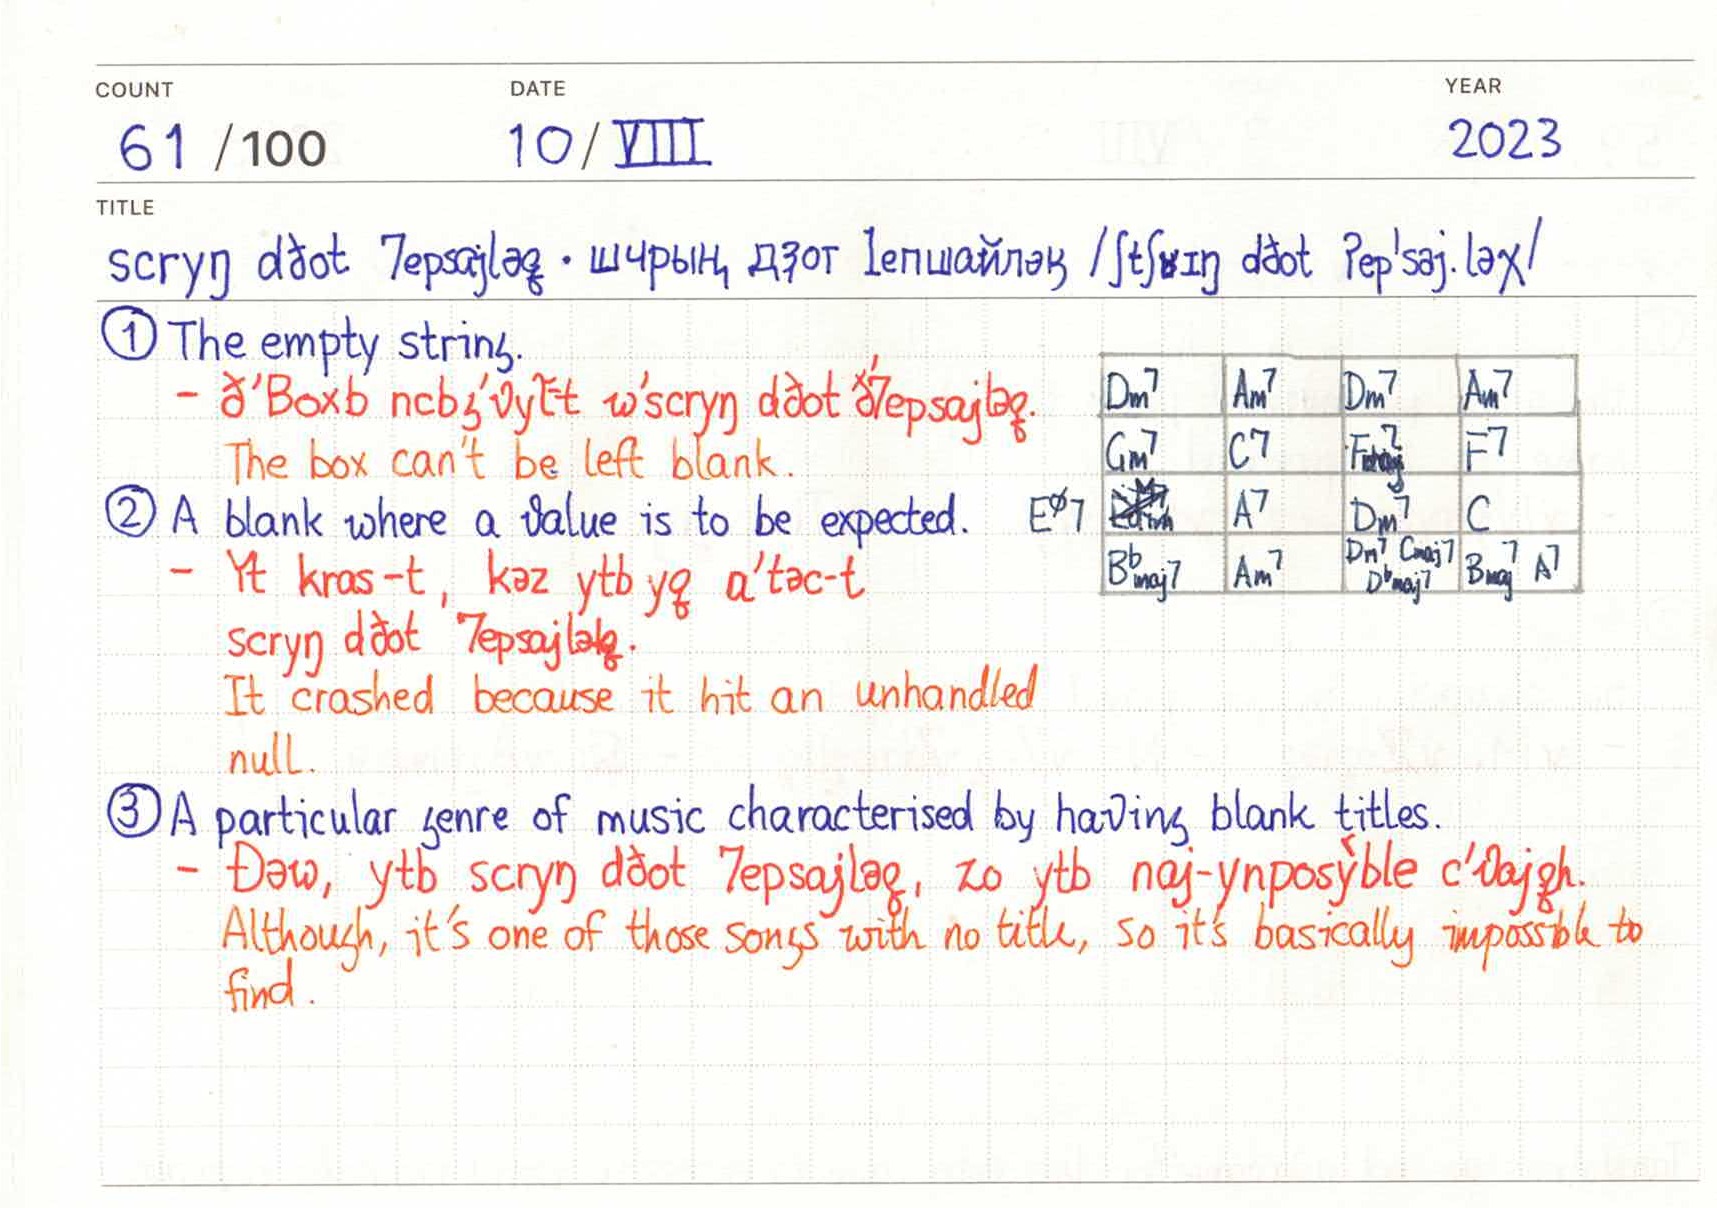 COUNT DATE YEAR
61 /100 10/VIII 2023
TITLE
scryŋ dðot 7epsajləꝗ · шчрыӊ дҙот 1епшайләӄ /ʃtʃʁɪŋ dðot ʔep'səj.ləχ/
① The empty string.
- ð'Boxb w'scryŋ dðot
The box can't be left blank.
② A blank where a value is to be expected.
- Yt kras-t, kəz ytb yꝗ a'təc-t
scryŋ dðot 7epsajləꝗ.
It crashed because it hit an unhandled
null.
③ A particular genre of music characterised by having blank titles.
- Ðəw, ytb scryŋ dðot 7epsajləꝗ, zo ytb naj-ynposyble c'vajꝗh.
Although, it's one of those songs with no title, so it's basically impossible to
find.
Dm7 Am7 Dm7 Am7
Gm7 C7 F7
EØ7 A7 Dm7 C
Bbmaj7 Am7 Dm7 Cmaj7 Dbmaj7 Bmaj7 A7